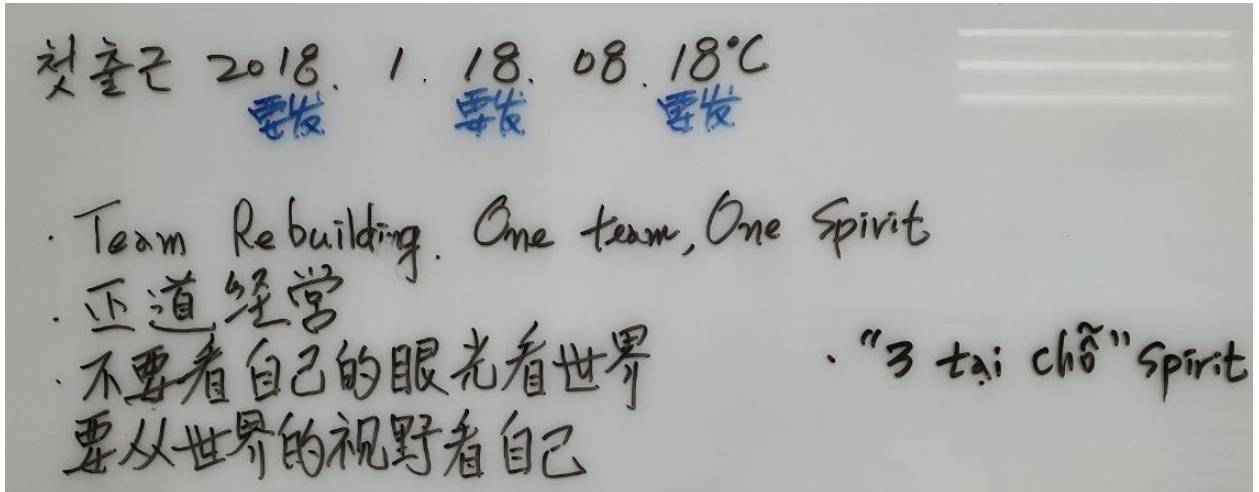 첫출근 2018. 1. 18. 08. 18°C
要发 要发 要发
· Team Rebuilding. One team, One Spirit
· 正道经営
· 不要看自己的眼光看世界
要从世界的视野看自己
· "3 tại chỗ" Spirit